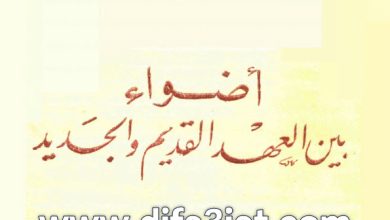 أضواء
بين العهد القديم والجديد
www.difa3iat.com